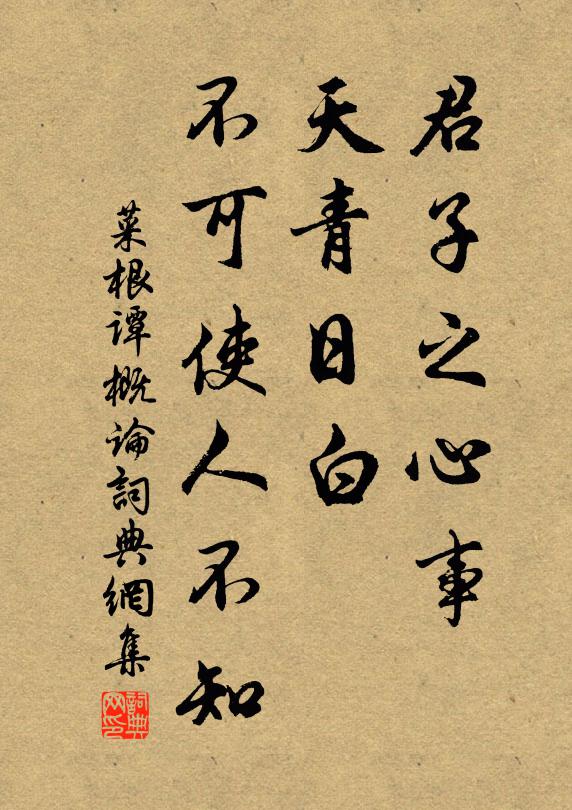 君子之心事
天青日白
不可使人不知
菜根谭概论詞典網集
詞典网印